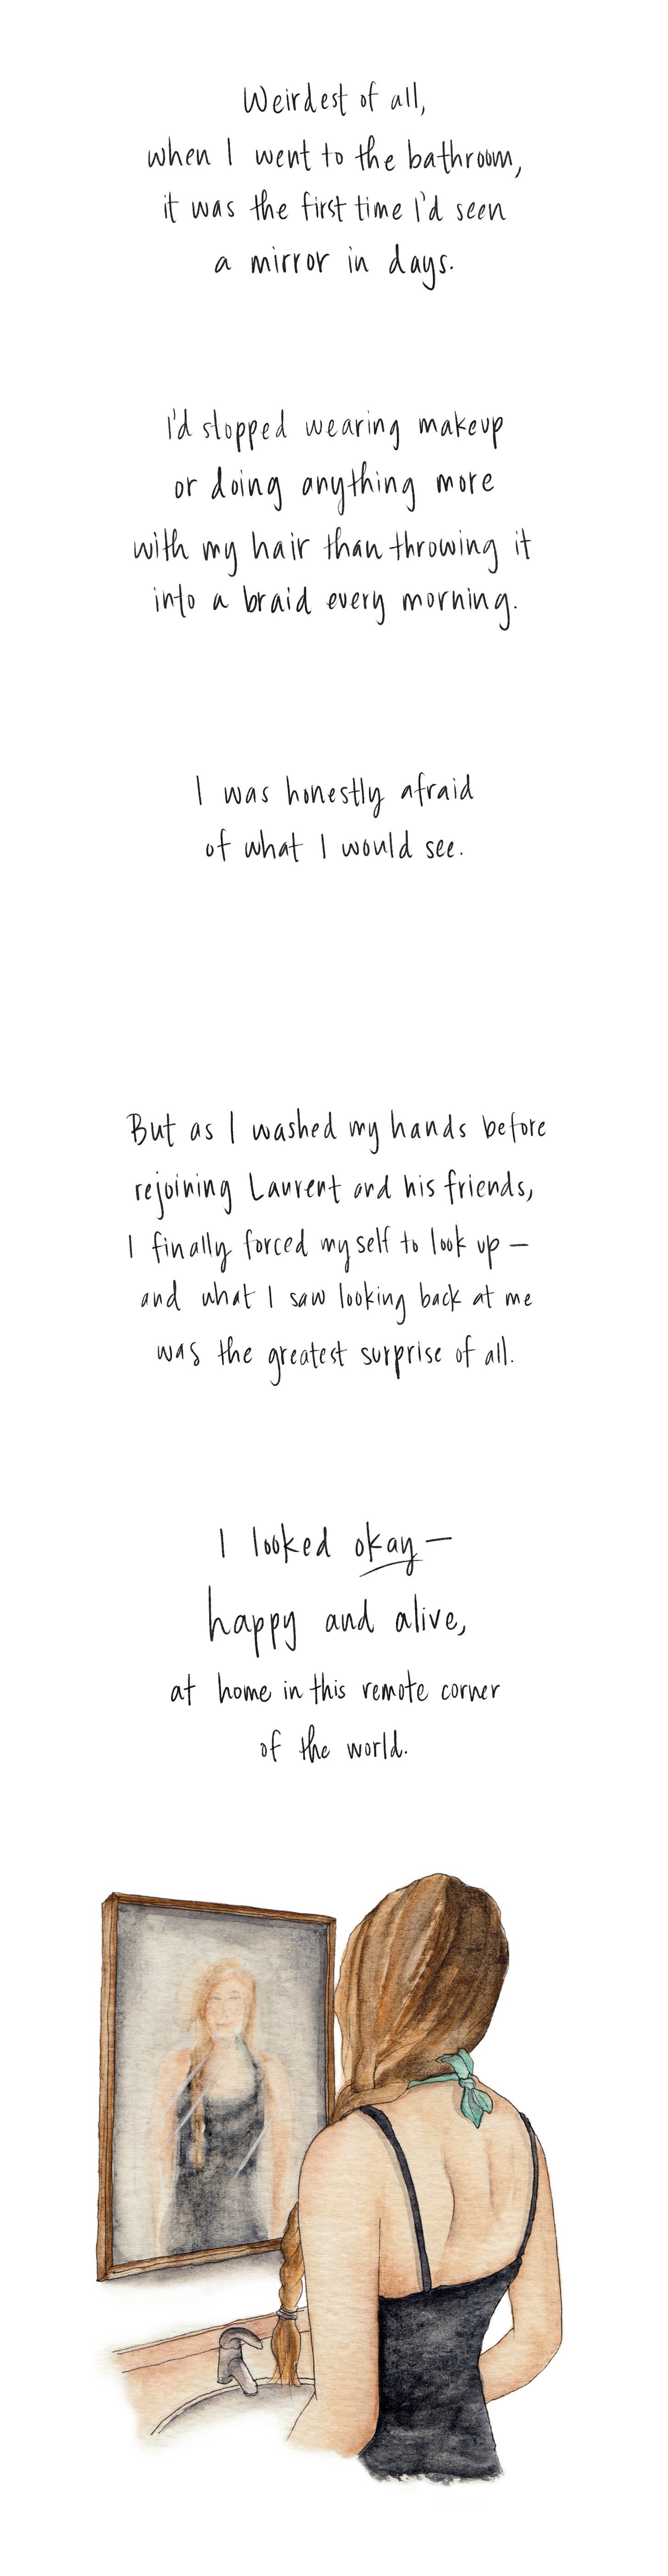 Weirdest of all,
when I went to the bathroom,
it was the first time I'd seen
a mirror in days.
I'd stopped wearing makeup
or doing anything more
with my hair than throwing it
into a braid every morning.
I was honestly afraid
of what I would see.
But as I washed my hands before
rejoining Laurent and his friends,
I finally forced myself to look up —
and what I saw looking back at me
was the greatest surprise of all.
I looked okay —
happy and alive,
at home in this remote corner
of the world.